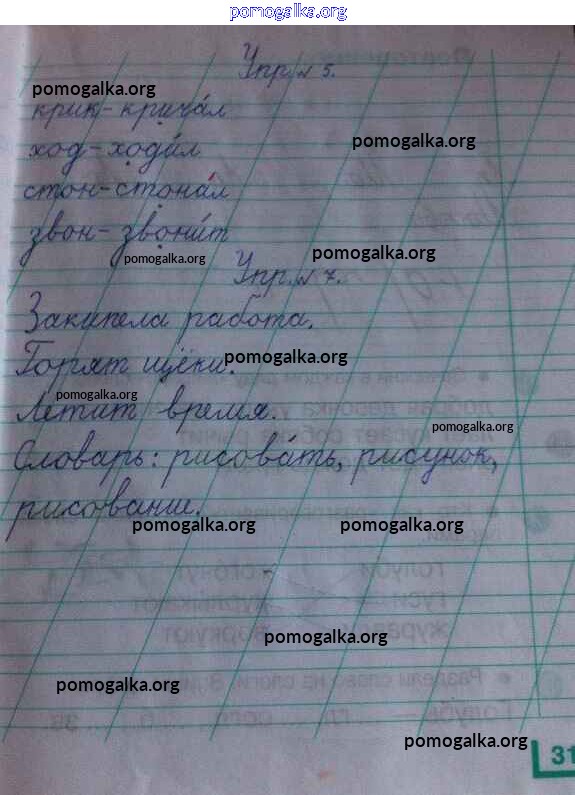 pomogalka.org
Упр. № 5.
pomogalka.org
крик-крича́л
pomogalka.org
ход-ходи́л
стон-стона́л
звон-звони́т
pomogalka.org
pomogalka.org
Упр. № 7.
Закипела работа.
pomogalka.org
Горят щёки.
pomogalka.org
Летит время.
pomogalka.org
Словарь: рисова́ть, рисунок,
рисование.
pomogalka.org pomogalka.org
pomogalka.org
pomogalka.org
pomogalka.org
31